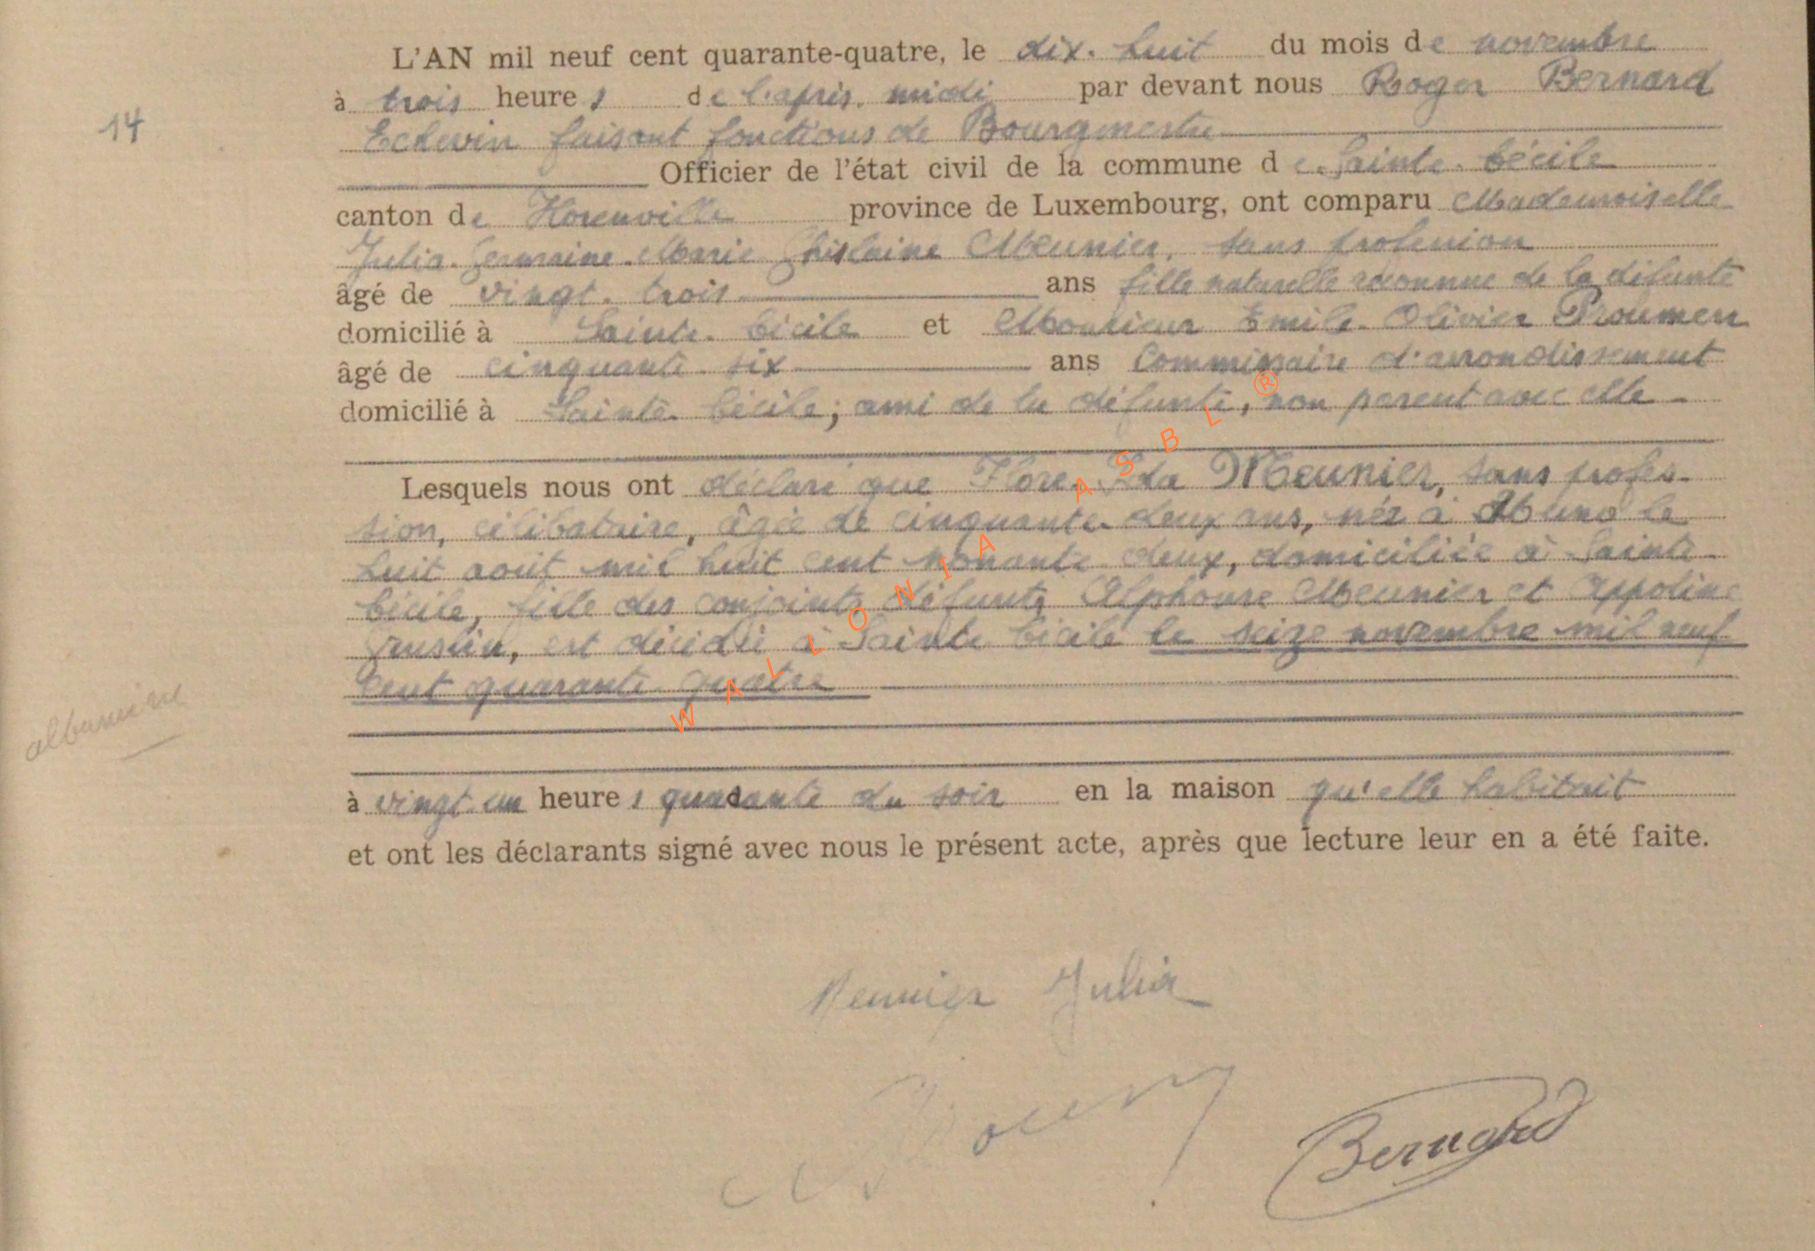 L'AN mil neuf cent quarante-quatre, le dix-huit du mois de novembre
à trois heures de l'après-midi par devant nous Roger Bernard
14
Echevin faisant fonctions de Bourgmestre
Officier de l'état civil de la commune de Sainte-Cécile
canton de Florenville province de Luxembourg, ont comparu Mademoiselle
Julia-Germaine-Marie Ghislaine Meunier, sans profession
âgé de vingt-trois ans fille naturelle reconnue de la défunte
domicilié à Sainte-Cécile et Monsieur Emile-Olivier Proumen
âgé de cinquante-six ans Commissaire d'arrondissement
domicilié à Sainte-Cécile; ami de la défunte, non parent avec elle
Lesquels nous ont déclaré que Flore-Ida Meunier, sans profes-
sion, célibataire, âgée de cinquante-deux ans, née à Muno le
huit août mil huit cent nonante-deux, domiciliée à Sainte-
Cécile, fille des conjoints défunts Alphonse Meunier et Appoline
est décédée à Sainte Cécile le seize novembre mil neuf
cent quarante-quatre
albumine
à vingt-un heures quarante du soir en la maison qu'elle habitait
et ont les déclarants signé avec nous le présent acte, après que lecture leur en a été faite.
Meunier Julia
Bernard
WALLONIA ASBL ®